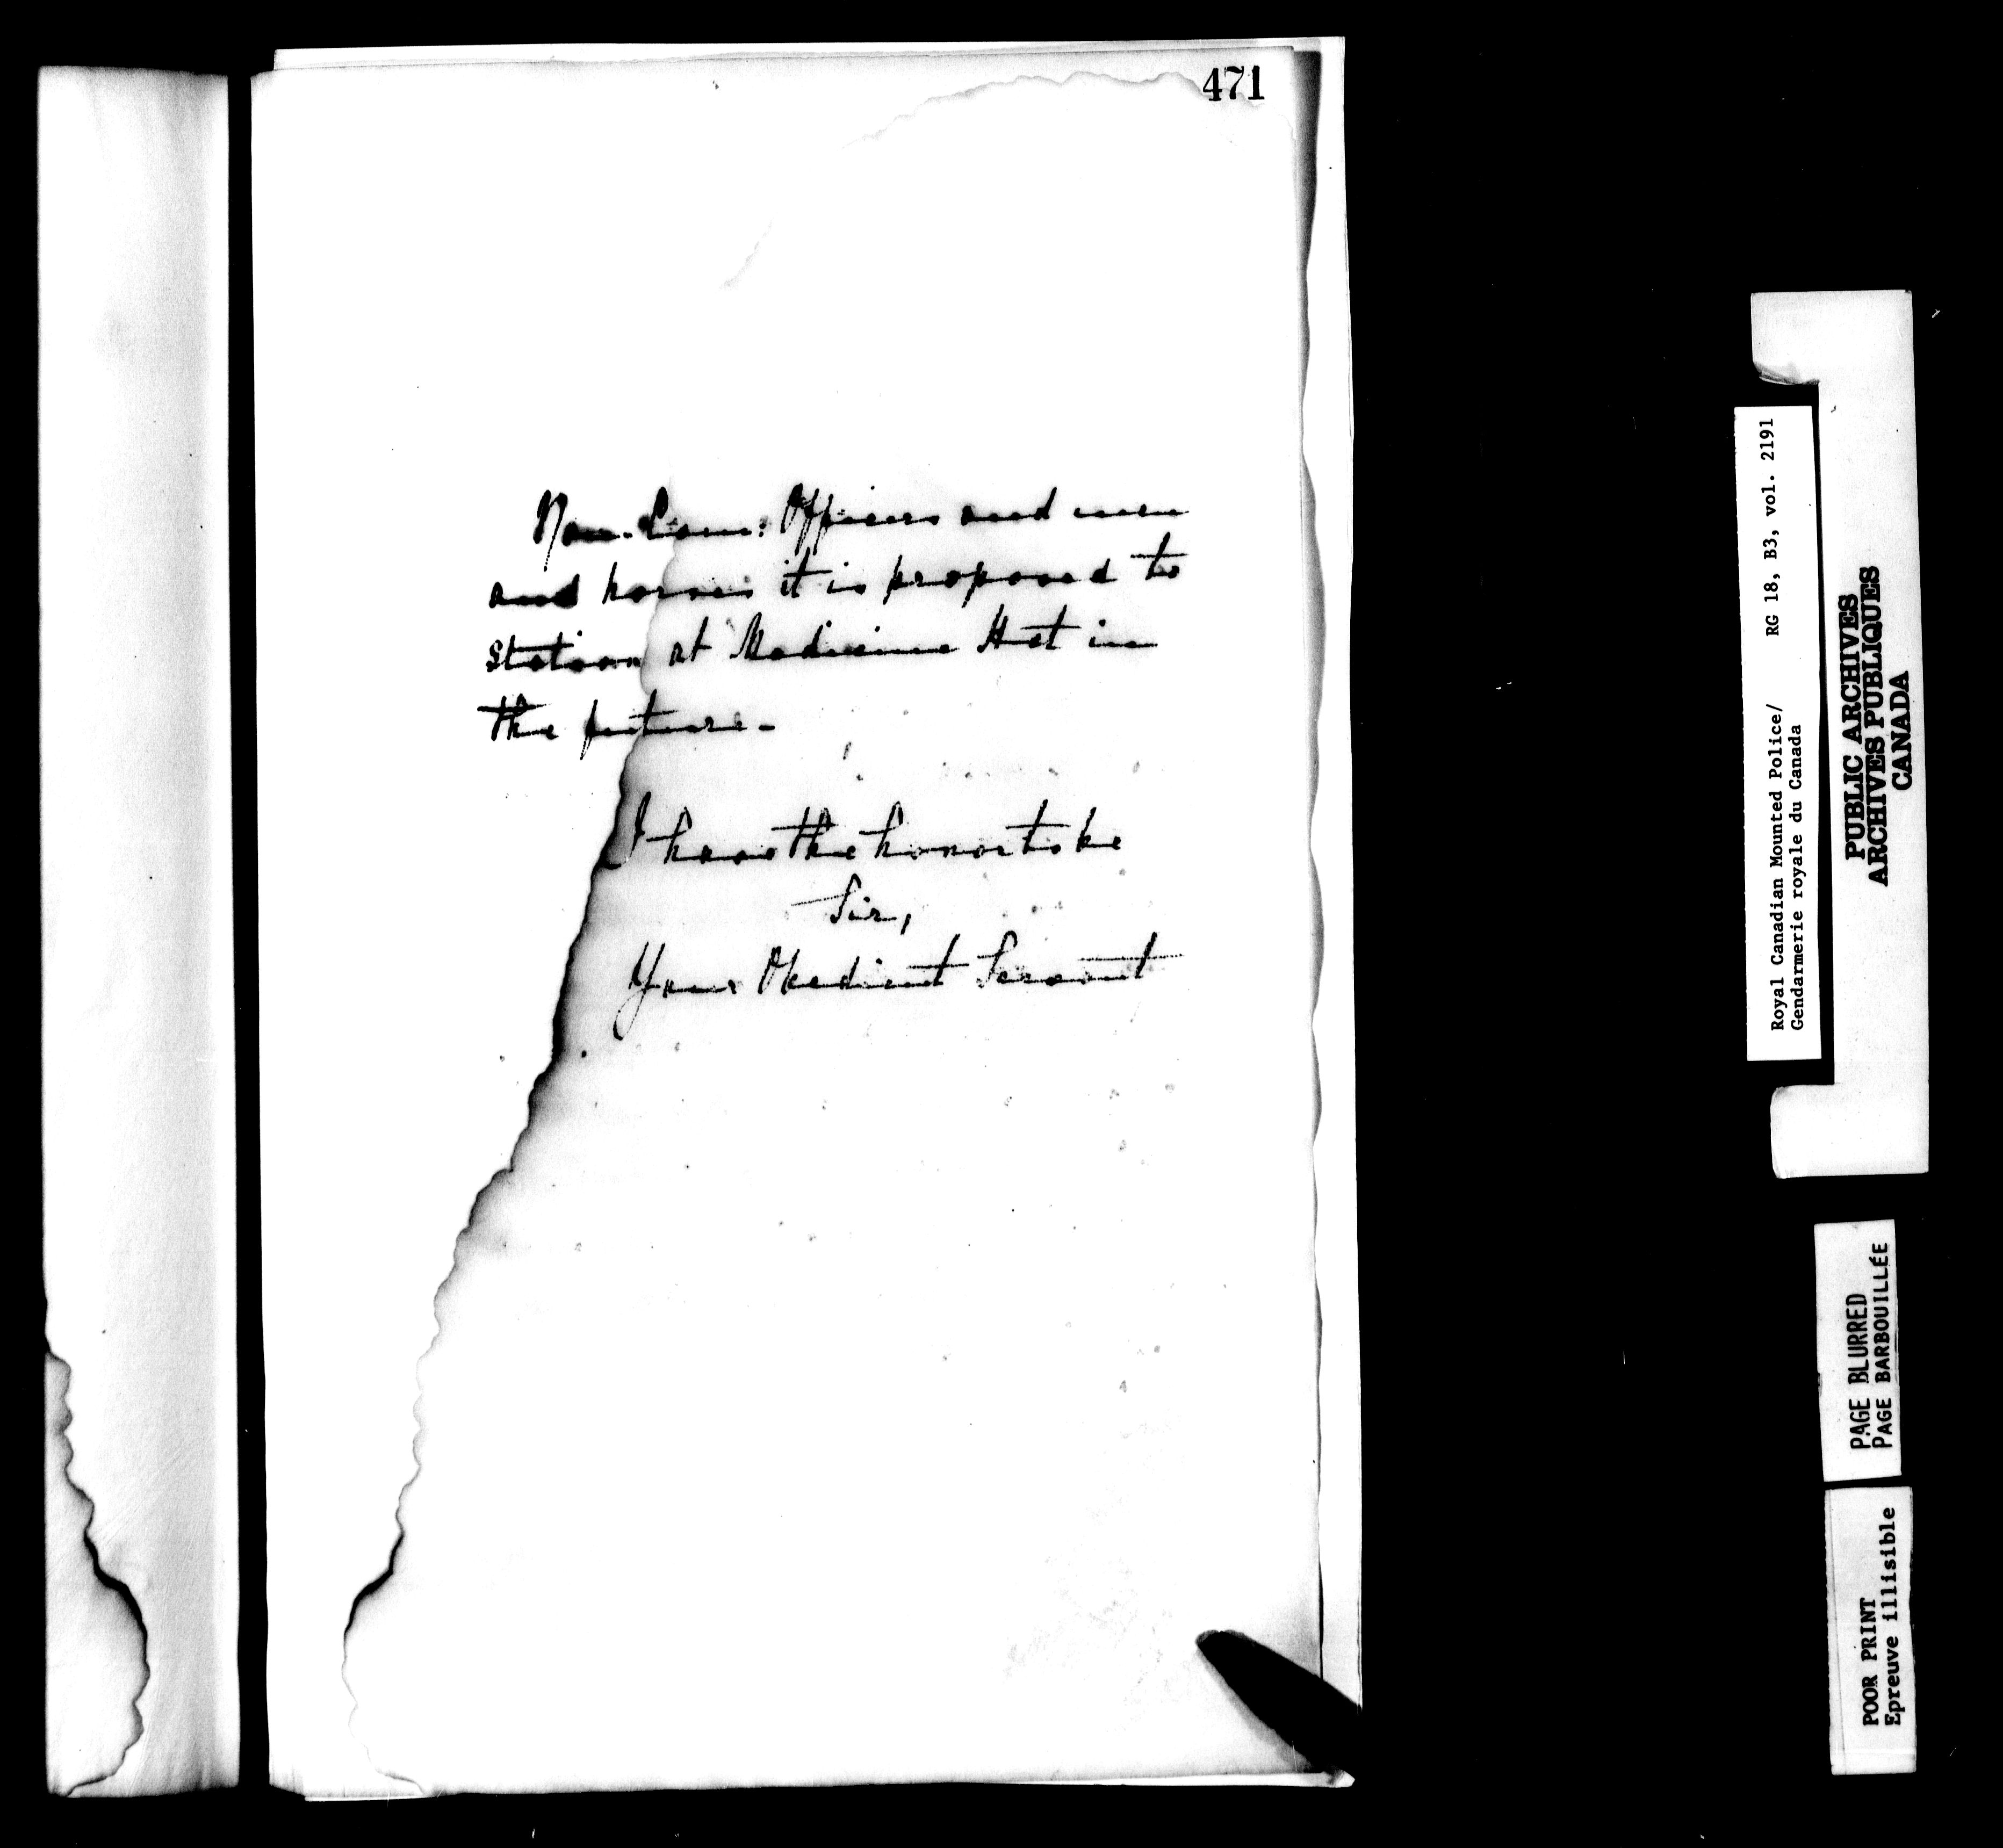 471
Non-Com: Officers and men
and horses it is proposed to
station at Medicine Hat in
the future-
I have the honor to be
Sir,
Your Obedient Servant
Royal Canadian Mounted Police/ RG 18, B3, vol. 2191
Gendarmerie royale du Canada
PUBLIC ARCHIVES
ARCHIVES PUBLIQUES
CANADA
PAGE BLURRED
PAGE BARBOUILLÉE
POOR PRINT
Epreuve illisible